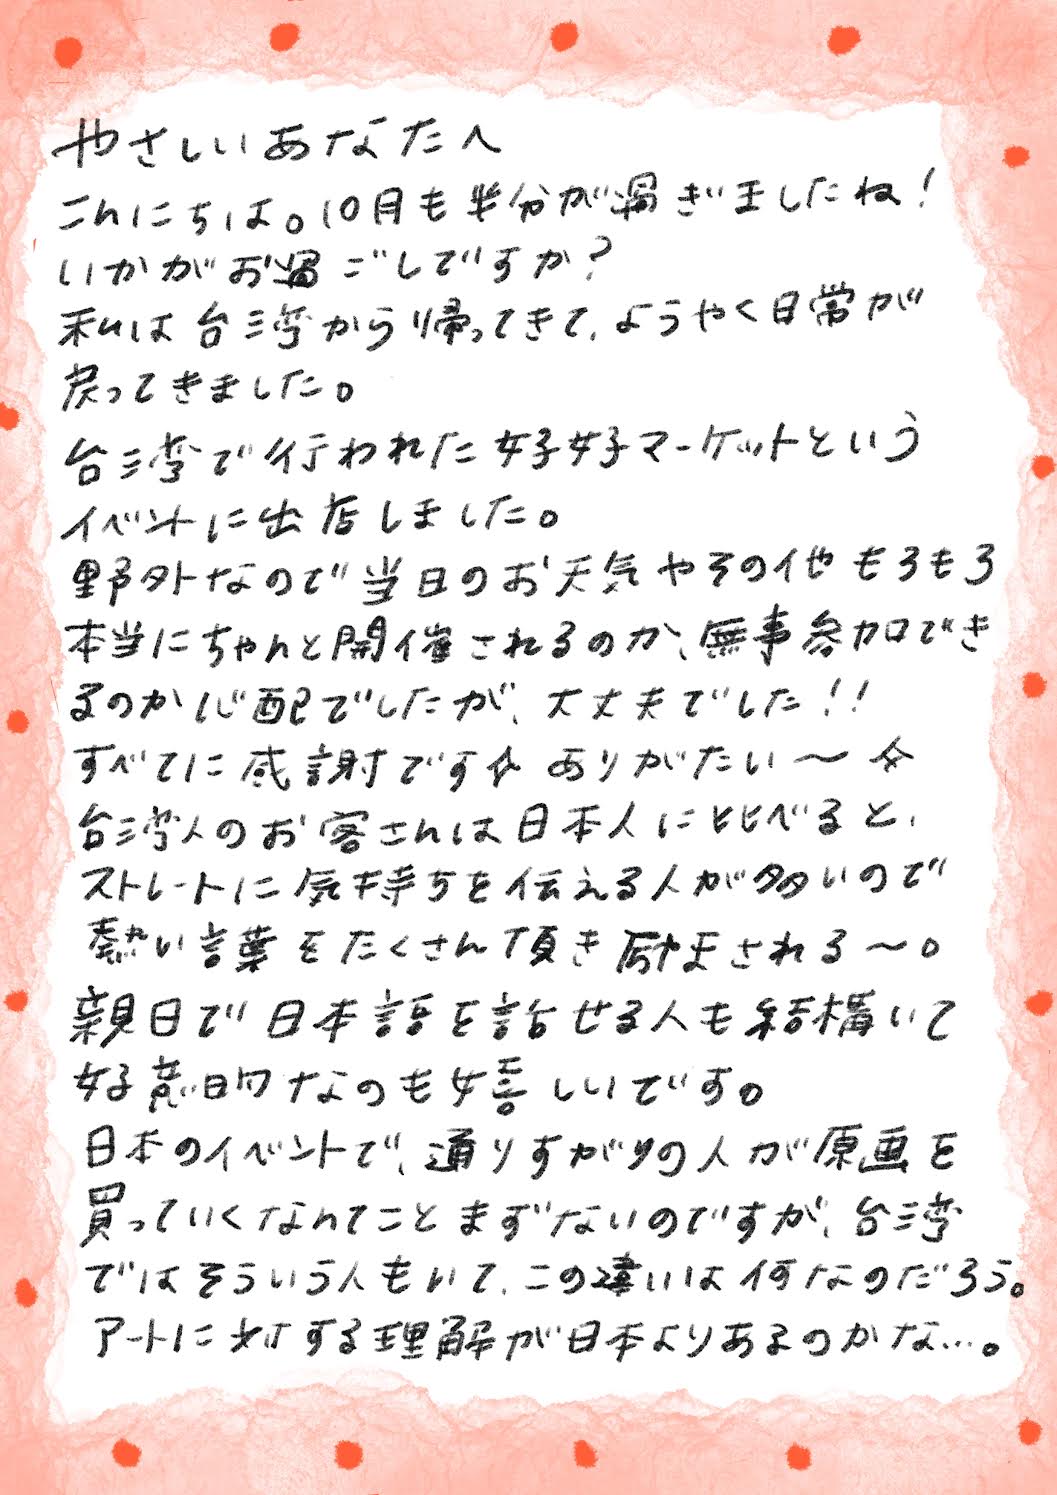 やさしいあなたへ
こんにちは。10月も半分が過ぎましたね!
いかがお過ごしですか?
私は台湾から帰ってきて、ようやく日常が
戻ってきました。
台湾で行われた好好マーケットという
イベントに出店しました。
野外なので当日のお天気やその他もろもろ
本当にちゃんと開催されるのか、無事参加でき
るのか心配でしたが、大丈夫でした!!
すべてに感謝です☆ ありがたい〜☆
台湾人のお客さんは日本人に比べると、
ストレートに気持ちを伝える人が多いので
熱い言葉をたくさん頂き励まされる〜。
親日で日本語を話せる人も結構いて
好意的なのも嬉しいです。
日本のイベントで、通りすがりの人が原画を
買っていくなんてことまずないのですが、台湾
ではそういう人もいて、この違いは何なのだろう。
アートに対する理解が日本よりあるのかな…。